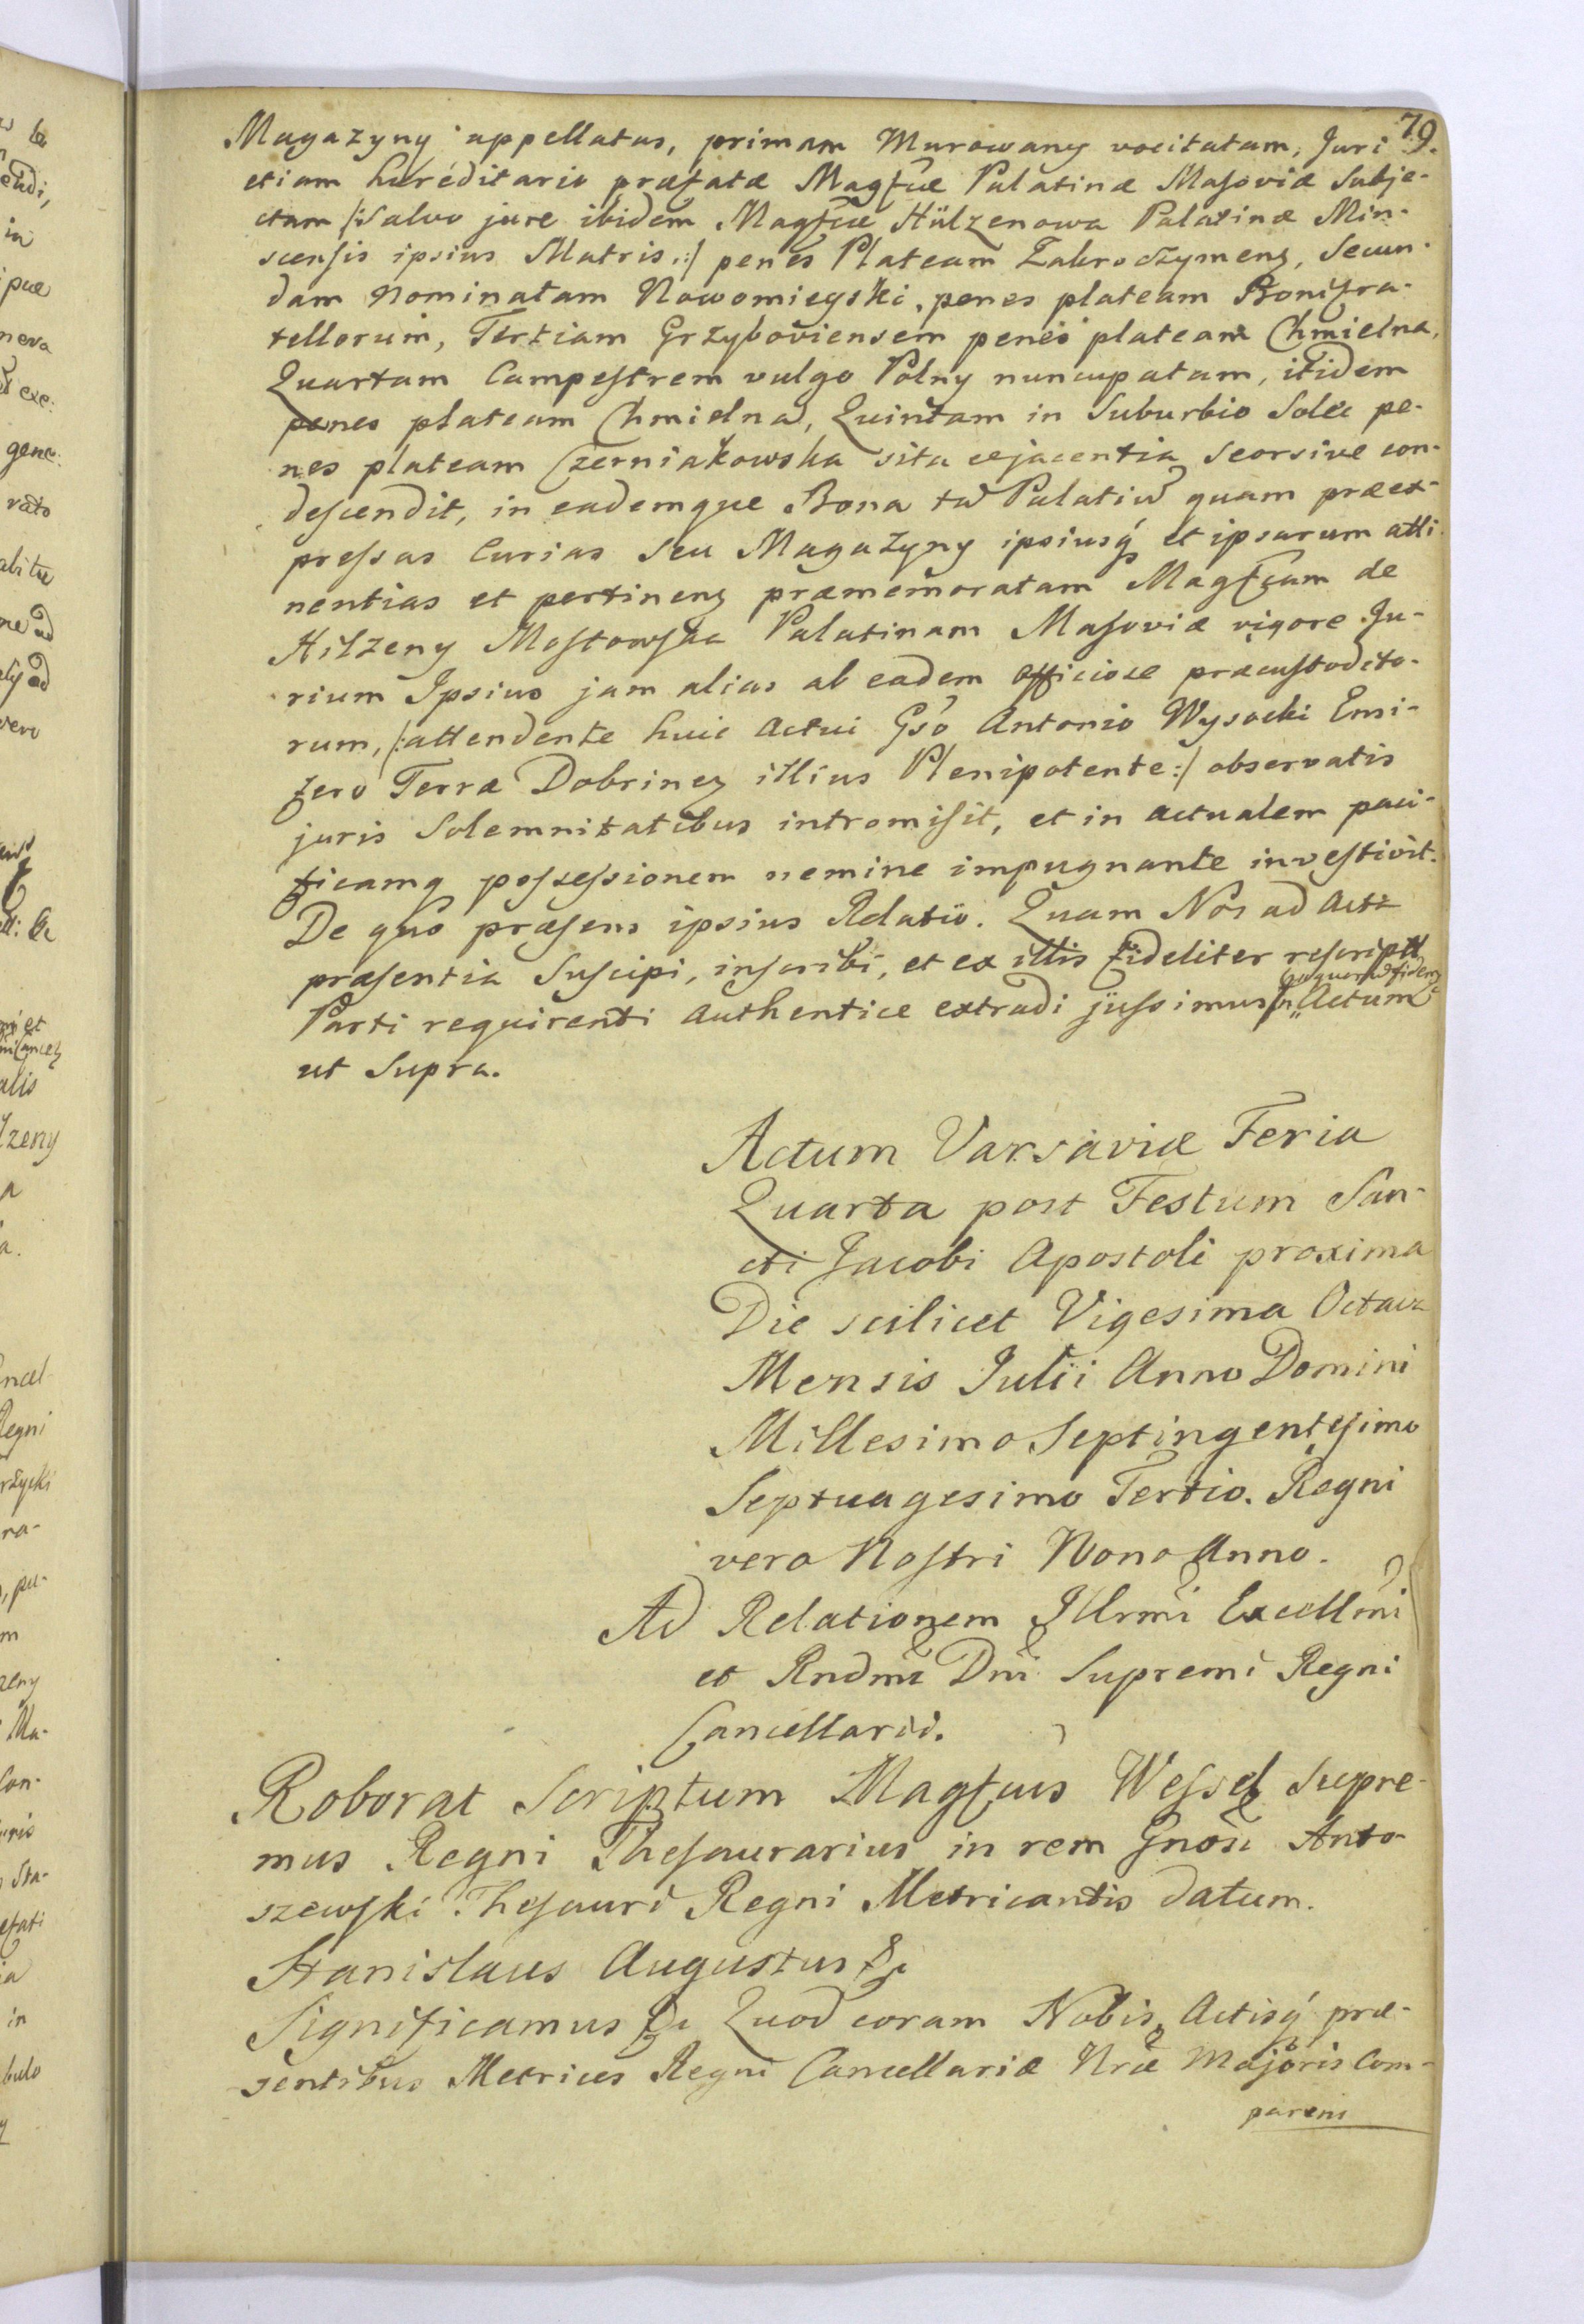 79.
Magazyny appellatas, primam Murowany vocitatam, Juri
etiam hæreditario præfatæ Magfcæ Palatinæ Masoviæ subje-
ctam /:Salvo jure ibidem Magfcæ Hülzenowa Palatinæ Min-
scensis ipsius Matris.:/ penes Plateam Zakroczymeng, Secun-
dam Nominatam Nowomieyski, penes plateam Bonifra-
tellorum, Tertiam Grzyboviensem penes plateam Chmielna,
Quartam Campestrem vulgo Polny nuncupatam, itidem
penes plateam Chmielna, Quintam in Suburbio Solec pe-
nes plateam Czerniakowska sita cejacentia seorsive con-
descendit, in eademque Bona tã Palatiũ quam præex-
pressas Curias seu Magazyny ipsiusq̃ et ipsarum atti-
nentias et pertineng præmemoratam Magfcam de
Hilzeny Mostowska Palatinam Masoviæ vigore Ju-
rium Ipsius jam alias ab eadem officiose præcustodito-
rum, /:attendente huic Actui Gso Antonio Wysocki Emi-
zero Terræ Dobrineng illius Plenipotente:/ observatis
juris Solemnitatibus intromisit, et in actualem paci-
ficamq possessionem nemine impugnante investivit.
De quo præsens ipsius Relatio. Quam Nos ad Acta
præsentia Suscipi, inscribi, et ex illis fideliter rescriptã
Parti requirenti Authentice extradi jussimus In quorum fidem Actum
ut Supra.
Actum Varsaviæ Feria
Quarta post Festum San-
cti Jacobi Apostoli proxima
Die scilicet Vigesima Octava
Mensis Julii Anno Domini
Millesimo Septingentesimo
Septuagesimo Tertio. Regni
vero Nostri Nono Anno.
Ad Relationem Illrmi Excellmi
et Rndmi Dni Supremi Regni
Cancellarii.
Roborat Scriptum Magfcus Wessel Supre-
mus Regni Thesaurarius in rem Gnosi Anto-
szewski Thesauri Regni Metricantis datum.
Stanislaus Augustus &c
Significamus &c Quod coram Nobis, Actisq̃ præ-
sentibus Metrices Regni Cancellariæ Nræ Majoris Com-
parens